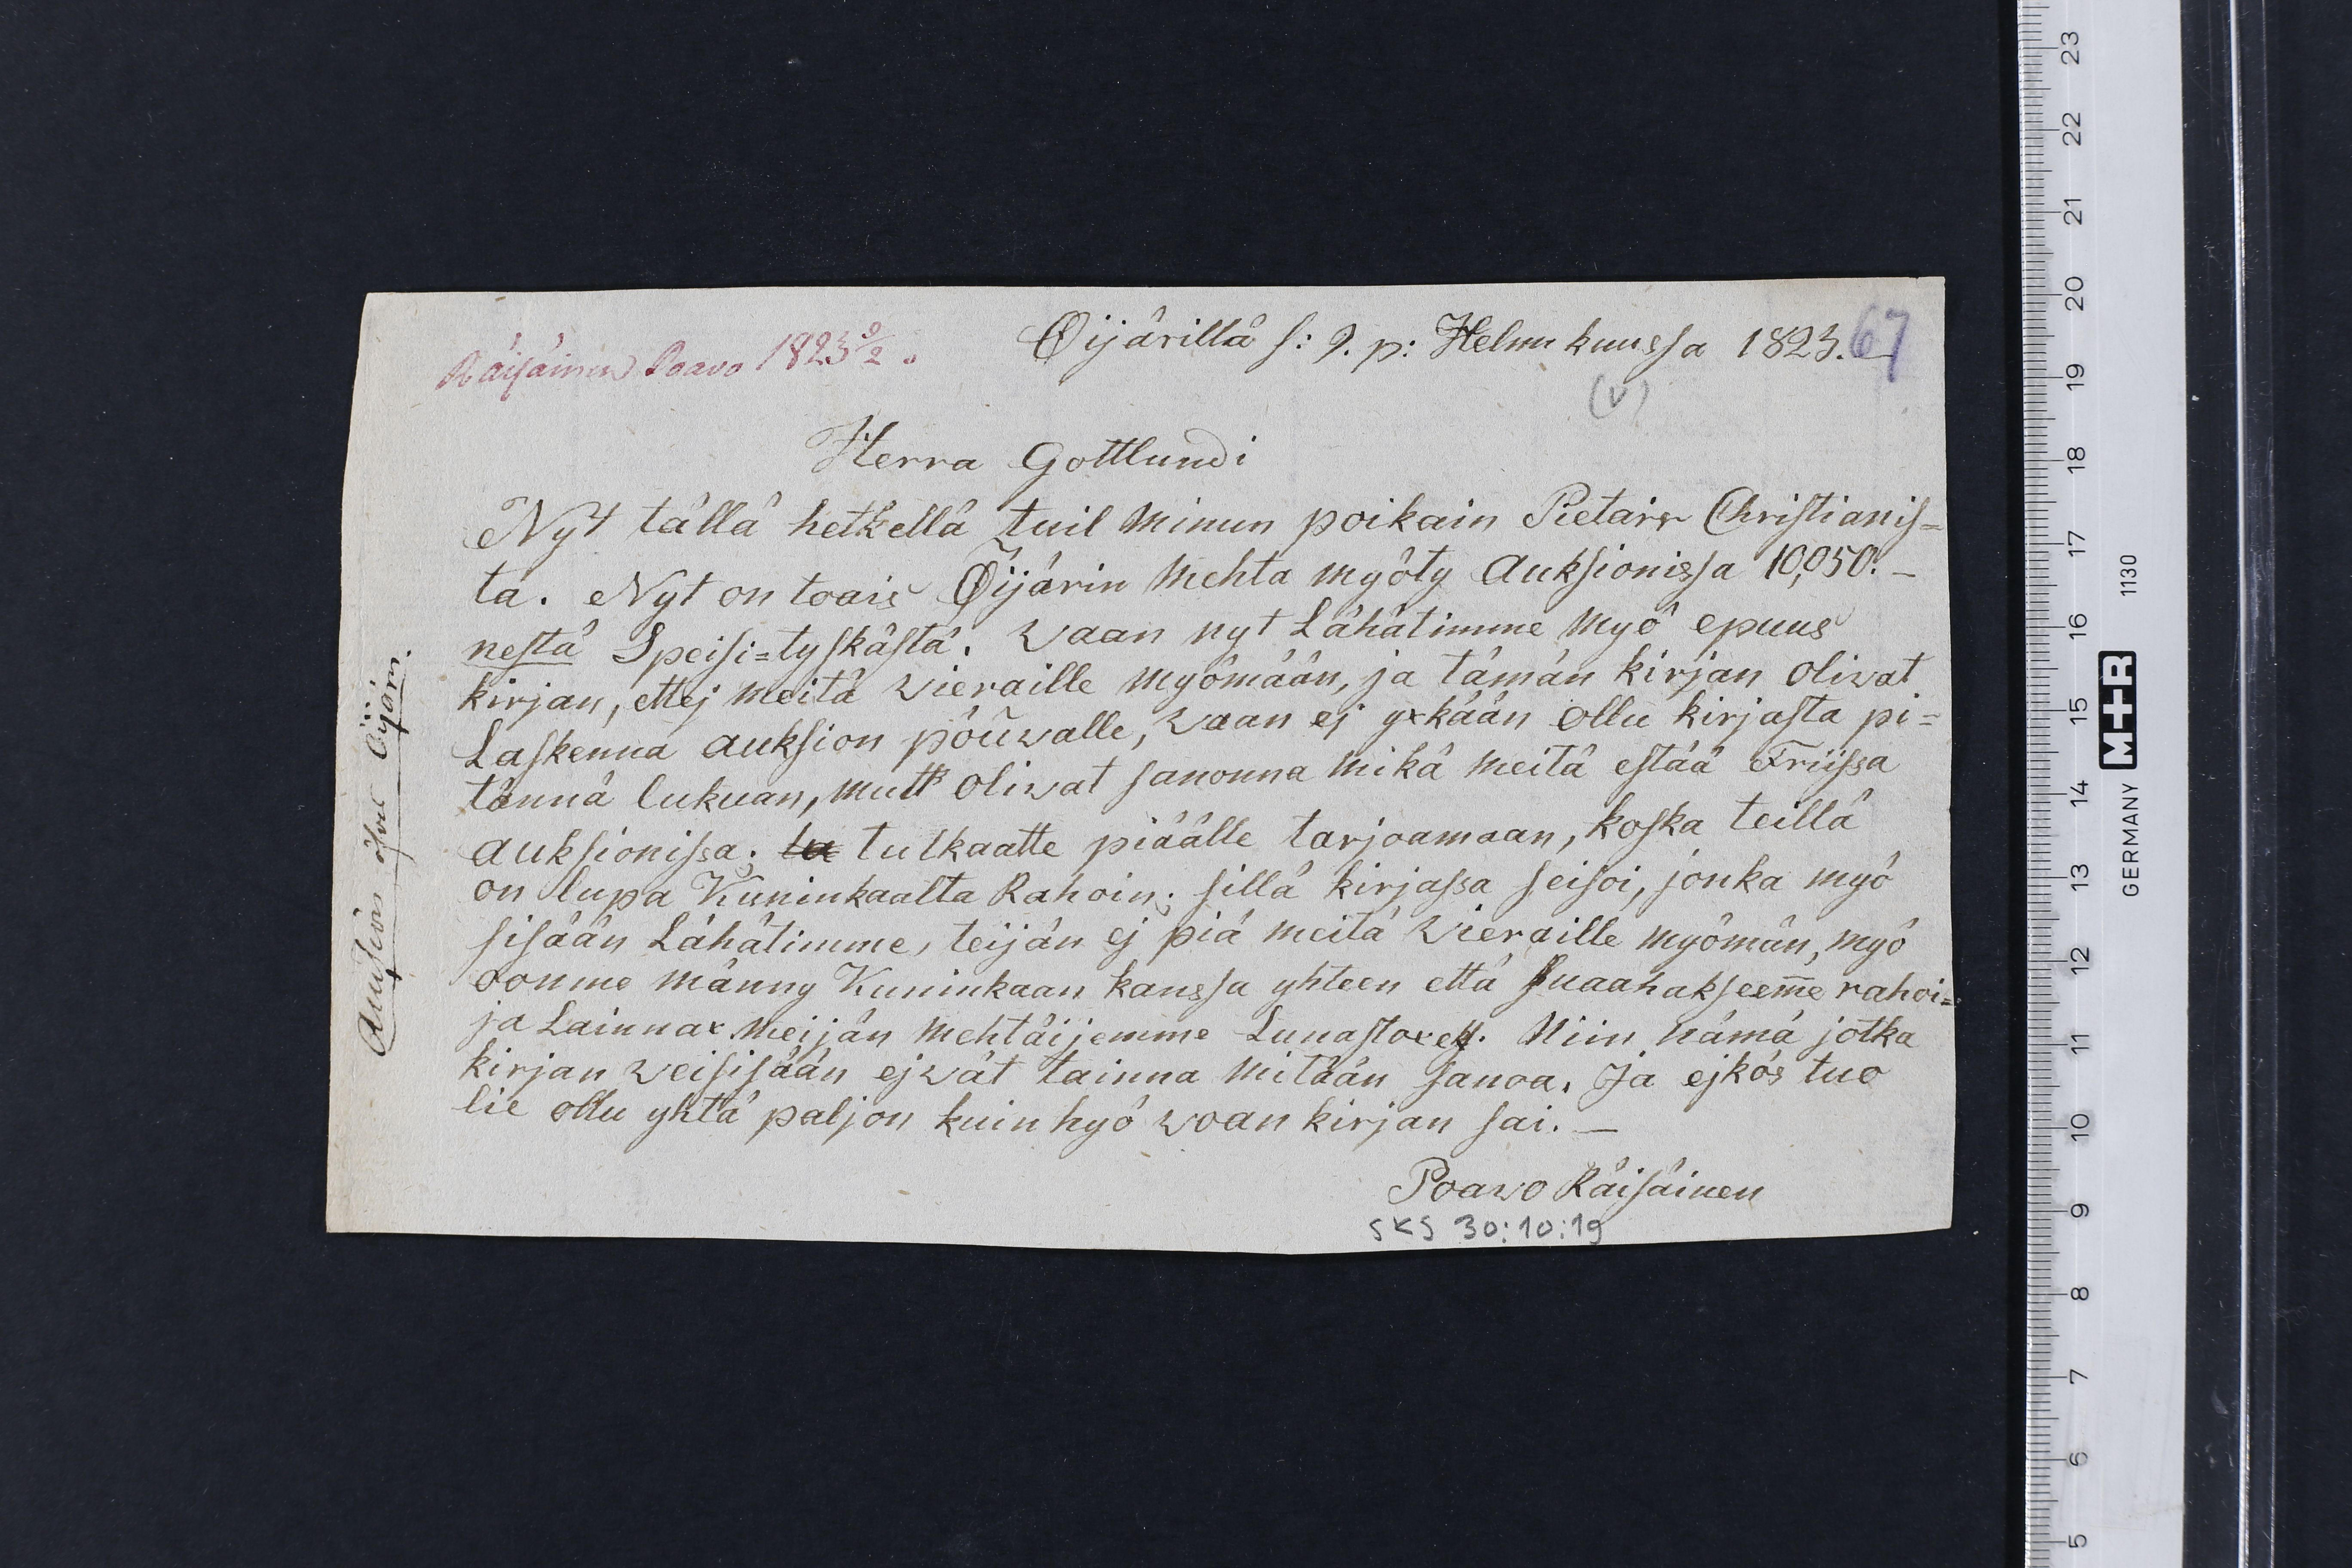 Räisäinen Poavo 1823 9/2.
Öijärillä s: 9. p: Helmikuussa 1823. 67
(v)
Herra Gottlundi
Nyt tällä hetkellä tuil minun poikain Pietari Christianis=
ta. Nyt on toais Öijärin mehta myöty Auksionissa 10,050. –
nestä Speisi=tyskästä. Vaan nyt Lähätimme myö epuus
kirjan, ettej meitä vieraille myömään, ja tämän kirjan olivat
Laskenna auksion pöüvalle, vaan ej yxkään ollu kirjasta pi=
tännä lukuan, mutt olivat sanonna mikä meitä estää Friissa
auksionissa; tu tulkaatte piäälle tarjoamaan, koska teillä
on lupa Kuninkaalta Rahoin; sillä kirjassa seisoi, jonka myö
sisään Lähätimme, teijän ej piä meitä vieraille myömän, myö
oonme männy Kuninkaan kanssa yhteen että Suaahakseem̄e rahoi=
ja Lainnax meijän mehtäijemme Lunastoxex. Niin nämä jotka
kirjan veisisään ejvät tainna mitään sanoa. Ja ejkös tuo
lie ollu yhtä paljon kuin hyö voan kirjan sai. –
Poavo Räisäinen
SKS 30:10:19
Auksion öfver Öijärn.
M+R
GERMANY 1130
23
22
21
20
19
18
17
16
15
14
13
12
11
10
9
8
7
6
5